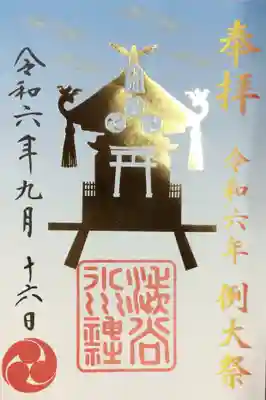 奉拝
令和六年 例大祭
渋谷
氷川神社
令和六年九月 十六日